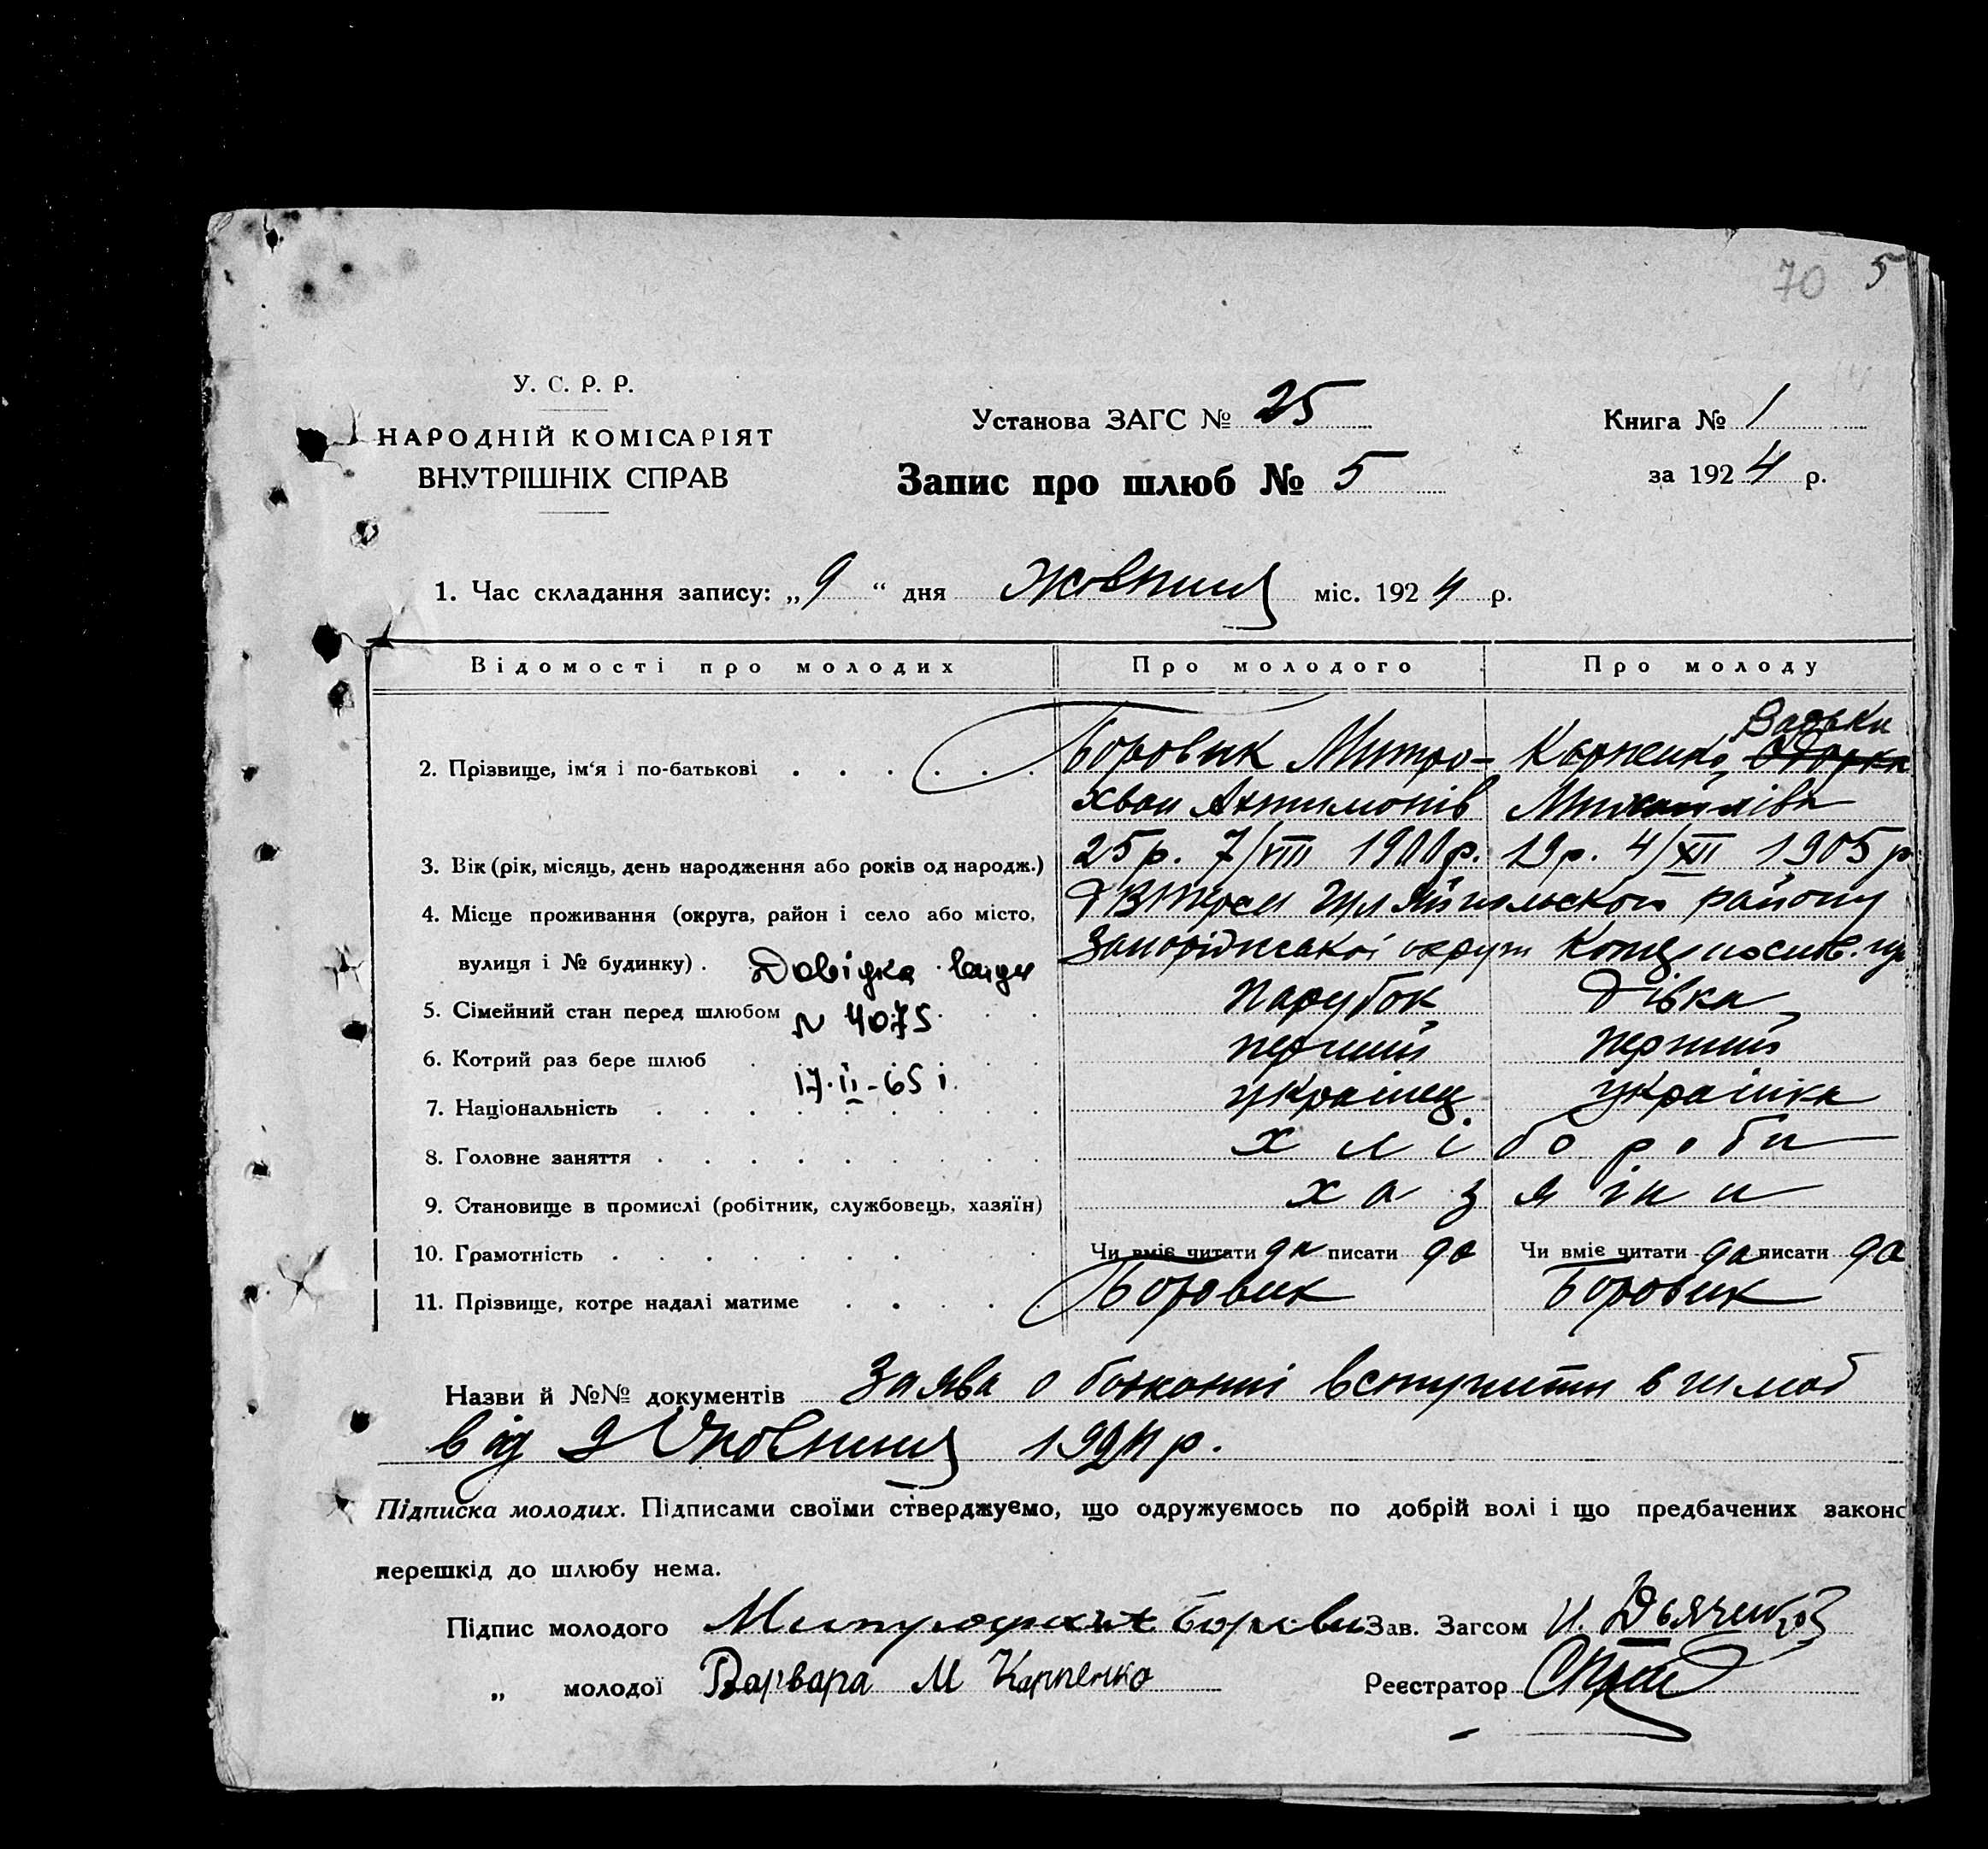 70 5
У. С. Р. Р.
НАРОДНІЙ КОМІСАРІЯТ
ВНУТРІШНІХ СПРАВ
Установа ЗАГС № 25
Запис про шлюб № 5
Книга № 1
за 1924 р.
1. Час складання запису: „9“ дня Жовтня міс. 1924 р.
Відомості про молодих Про молодого Про молоду
2. Прізвище, ім'я і по-батькові Боровик Митро- Карпенко
хван Антимонів Михайлівна
3. Вік (рік, місяць, день народження або років од народж.) 25 р. 7/VIII 1900 р. 19 р. 4/XII 1905 р
4. Місце проживання (округа, район і село або місто, району
вулиця і № будинку) Запоріжської округи
Довідка видн
5. Сімейний стан перед шлюбом парубок дівка
№ 4075
6. Котрий раз бере шлюб перший перший
17.II-65
7. Національність українец українка
8. Головне заняття хлібороби
9. Становище в промислі (робітник, службовець, хазяїн) хазяіни
10. Грамотність Чи вміє читати да писати да Чи вміє читати да писати да
11. Прізвище, котре надалі матиме Боровик Боровик
Назви й №№ документів Заява о вступити в шлюб
від 9 Жовтня 1924 р.
Підписка молодих. Підписами своїми стверджуємо, що одружуємось по добрій волі і що предбачених законо
перешкід до шлюбу нема.
Підпис молодого Митрофан Борови Зав. Загсом И. Дьяченко
„ молодої Варвара М Карпенко Реєстратор